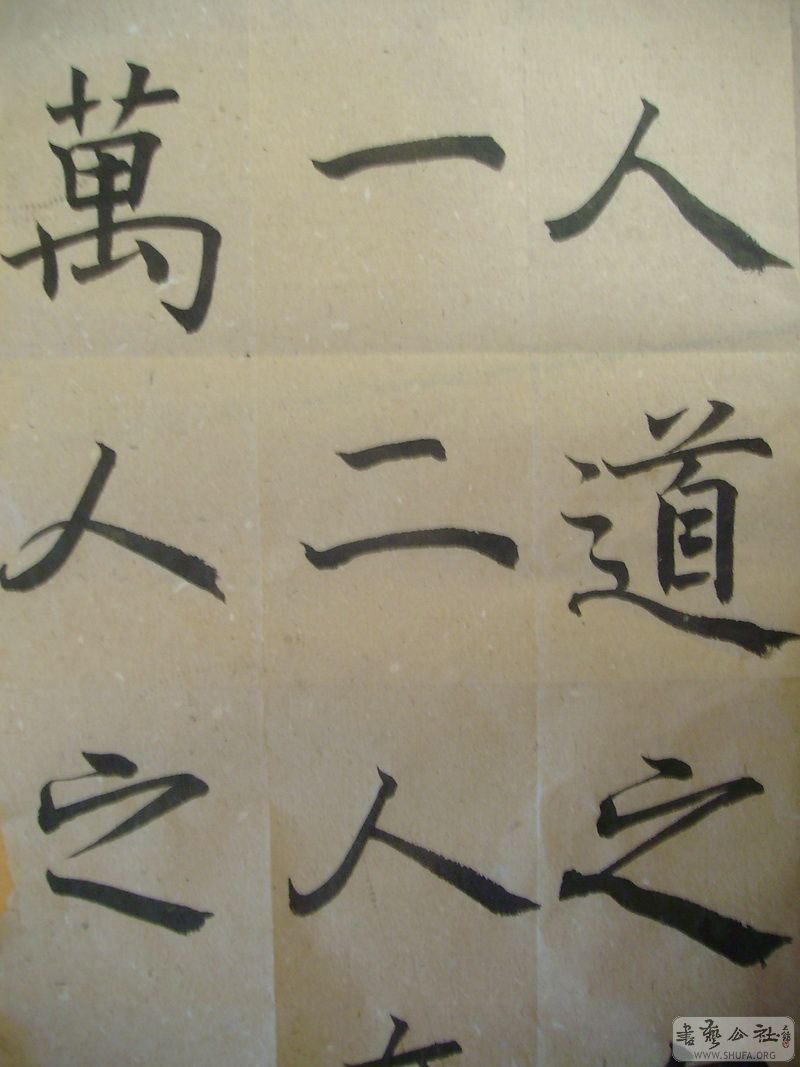 人道之
一二人
萬人之
書藝公社
WWW.SHUFA.ORG